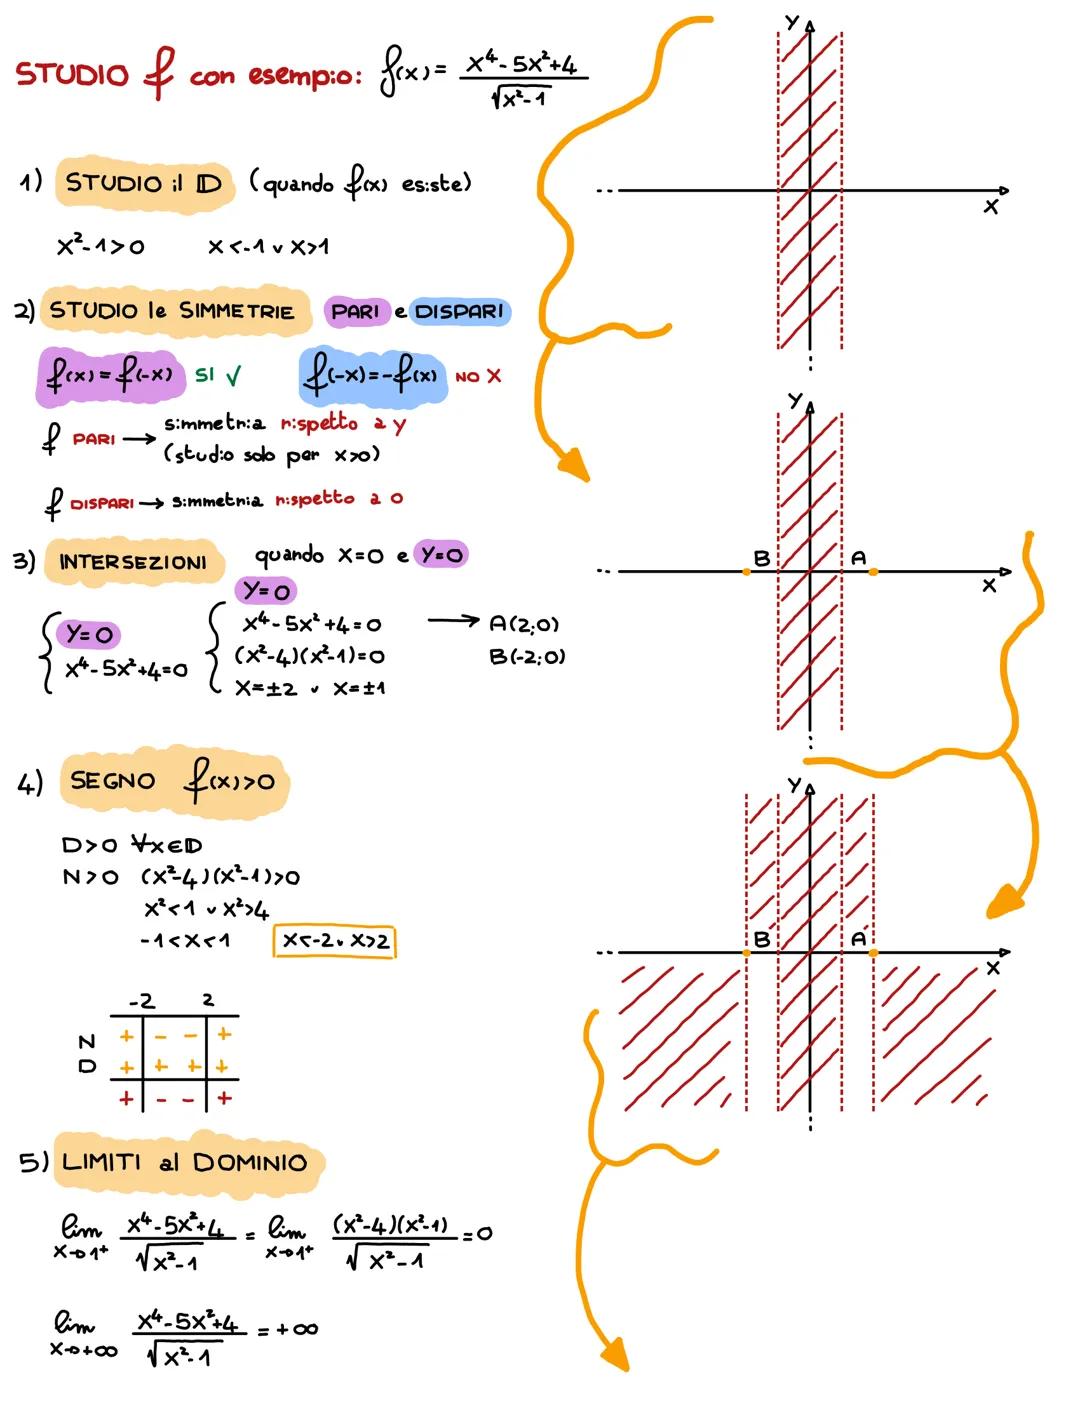 STUDIO f con esempio: f(x) = (x⁴-5x²+4)/√(x²-1)
1) STUDIO il D (quando f(x) esiste)
x²-1>0 x<-1 ∨ x>1
2) STUDIO le SIMMETRIE PARI e DISPARI
f(x) = f(-x) SI √ f(-x) = -f(x) NO X
f PARI → simmetria rispetto a y
(studio solo per x>0)
f DISPARI → simmetria rispetto a 0
3) INTERSEZIONI quando x=0 e y=0
y=0
x⁴-5x²+4=0
y=0
x⁴-5x²+4=0
(x²-4)(x²-1)=0
x=±2 ∨ x=±1
→ A(2;0)
B(-2;0)
4) SEGNO f(x)>0
D>0 ∀x∈D
N>0 (x²-4)(x²-1)>0
x²<1 ∨ x²>4
-1<x<1 x<-2 ∨ x>2
-2 2
N + - - +
D + + + +
+ - - +
5) LIMITI al DOMINIO
lim x→1⁺ (x⁴-5x²+4)/√(x²-1) = lim x→1⁺ (x²-4)(x²-1)/√(x²-1) = 0
lim x→+∞ (x⁴-5x²+4)/√(x²-1) = +∞
y
x
y
B A
x
y
B A
x